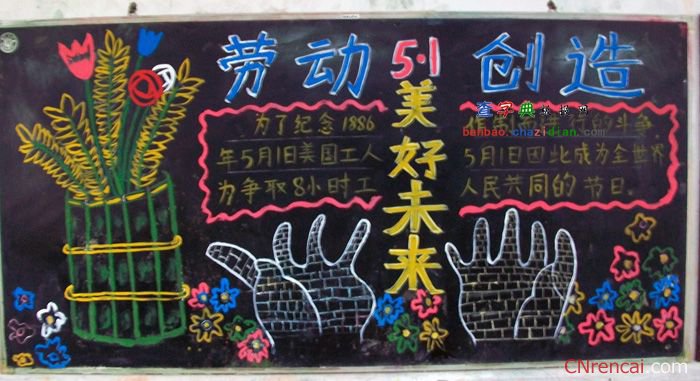 劳动 5·1 创造
美好未来
为了纪念1886
年5月1日美国工人
为争取8小时工
查字典
banbao.chazidian.com
的斗争
5月1日因此成为全世界
人民共同的节日.
CNrencai.com